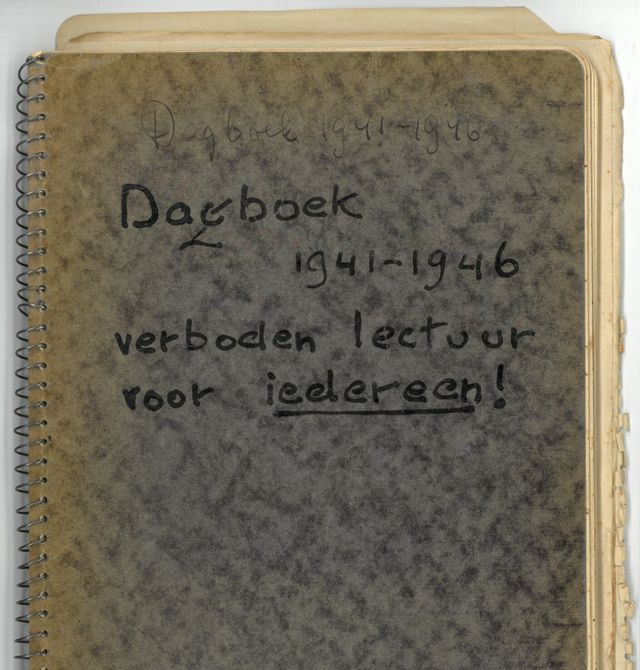 Dagboek 1941-1946
Dagboek
1941-1946
verboden lectuur
voor iedereen!